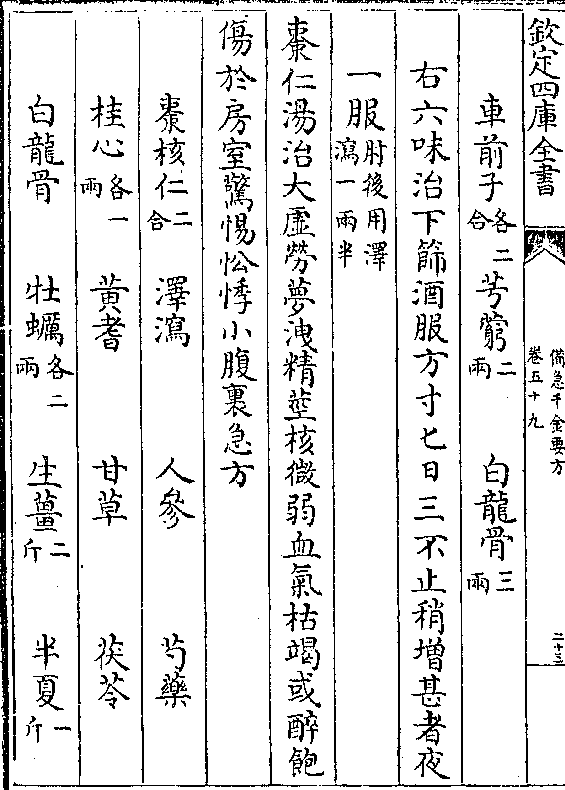 欽定四庫全書
備急千金要方
卷五十九
二十三
車前子各二合 芎藭二兩 白龍骨三兩
右六味治下篩酒服方寸匕日三不止稍增甚者夜
一服肘後用澤瀉一兩半
棗仁湯治大虛勞夢洩精莖核微弱血氣枯竭或醉飽
傷於房室驚惕忪悸小腹裏急方
棗核仁二合 澤瀉 人參 芍藥
桂心各一兩 黃耆 甘草 茯苓
白龍骨 牡蠣各二兩 生薑二斤 半夏一斤